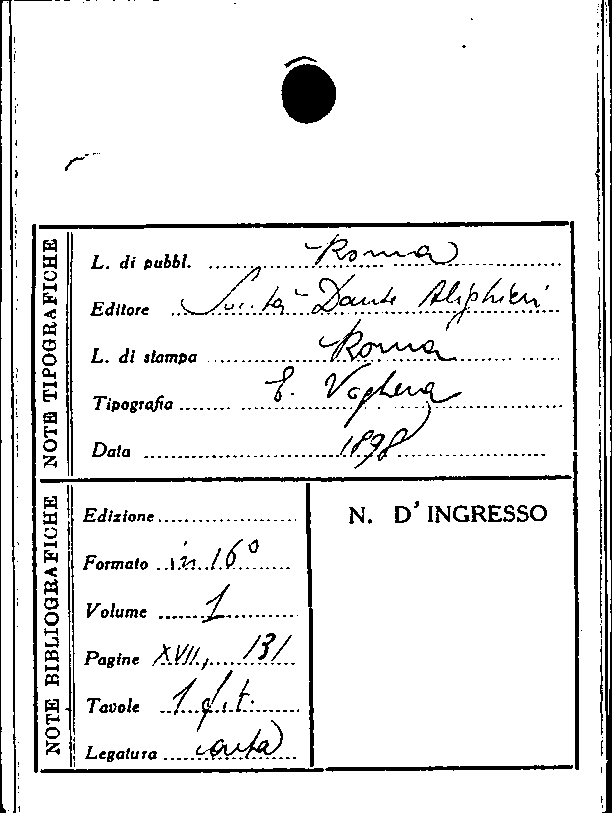 NOTE TIPOGRAFICHE
L. di pubbl. Roma
Editore Società Dante Alighieri
L. di stampa Roma
Tipografia E. Voghera
Data 1898
NOTE BIBLIOGRAFICHE
Edizione
Formato in 16°
Volume 1
Pagine XVII, 131
Tavole 1 f.t.
Legatura carta
N. D'INGRESSO